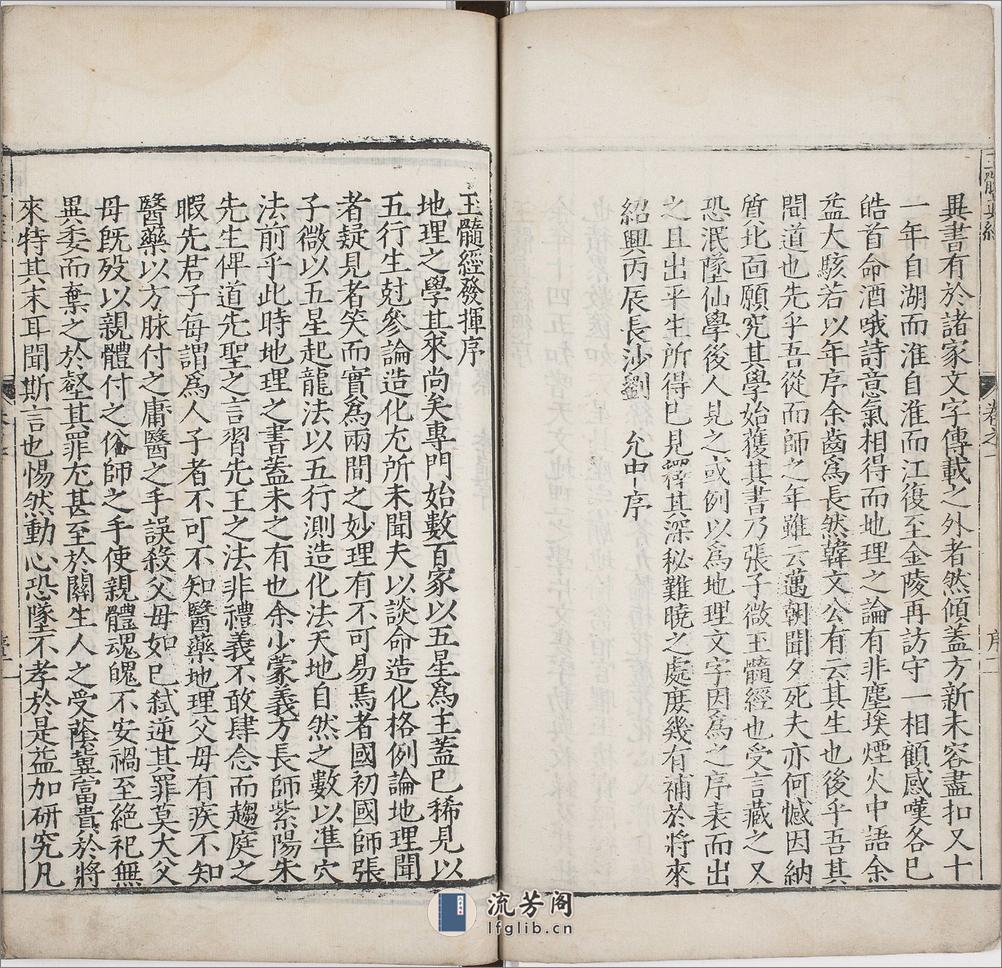 異書有於諸家文字傳載之外者然傾蓋方新未容盡扣又十
一年自湖而淮自淮而江復至金陵再訪守一相顧感嘆各已
皓首命酒哦詩意氣相得而地理之論有非塵埃煙火中語余
益大駭若以年序余齒為長然韓文公有云其生也後乎吾其
聞道也先乎吾從而師之年雖云邁朝聞夕死夫亦何憾因納
質北面願究其學始獲其書乃張子微玉髓經也受言藏之又
恐泯墜仙學後人見之或例以為地理文字因為之序表而出
之且出平生所得已見釋其深秘難曉之處庶幾有補於將來
紹興丙辰長沙劉 允中序
卷之一
序二
玉髓經發揮序
地理之學其來尚矣專門始數百家以五星為主蓋已稀見以
五行生尅參論造化尤所未聞夫以談命造化格例論地理聞
者疑見者笑而實為兩間之妙理有不可易焉者國初國師張
子微以五星起龍法以五行測造化法天地自然之數以準穴
法前乎此時地理之書蓋未之有也余少蒙義方長師紫陽朱
先生俾道先聖之言習先王之法非禮義不敢肆念而趨庭之
暇先君子每謂為人子者不可不知醫藥地理父母有疾不知
醫藥以方脉付之庸醫之手誤殺父母如已弑逆其罪莫大父
母旣歿以親體付之俗師之手使親體魂魄不安禍至絶祀無
異委而棄之於壑其罪尤甚至於關生人之受蔭冀富貴於將
來特其末耳聞斯言也惕然動心恐墜不孝於是益加研究凡
流芳阁
lfglib.cn